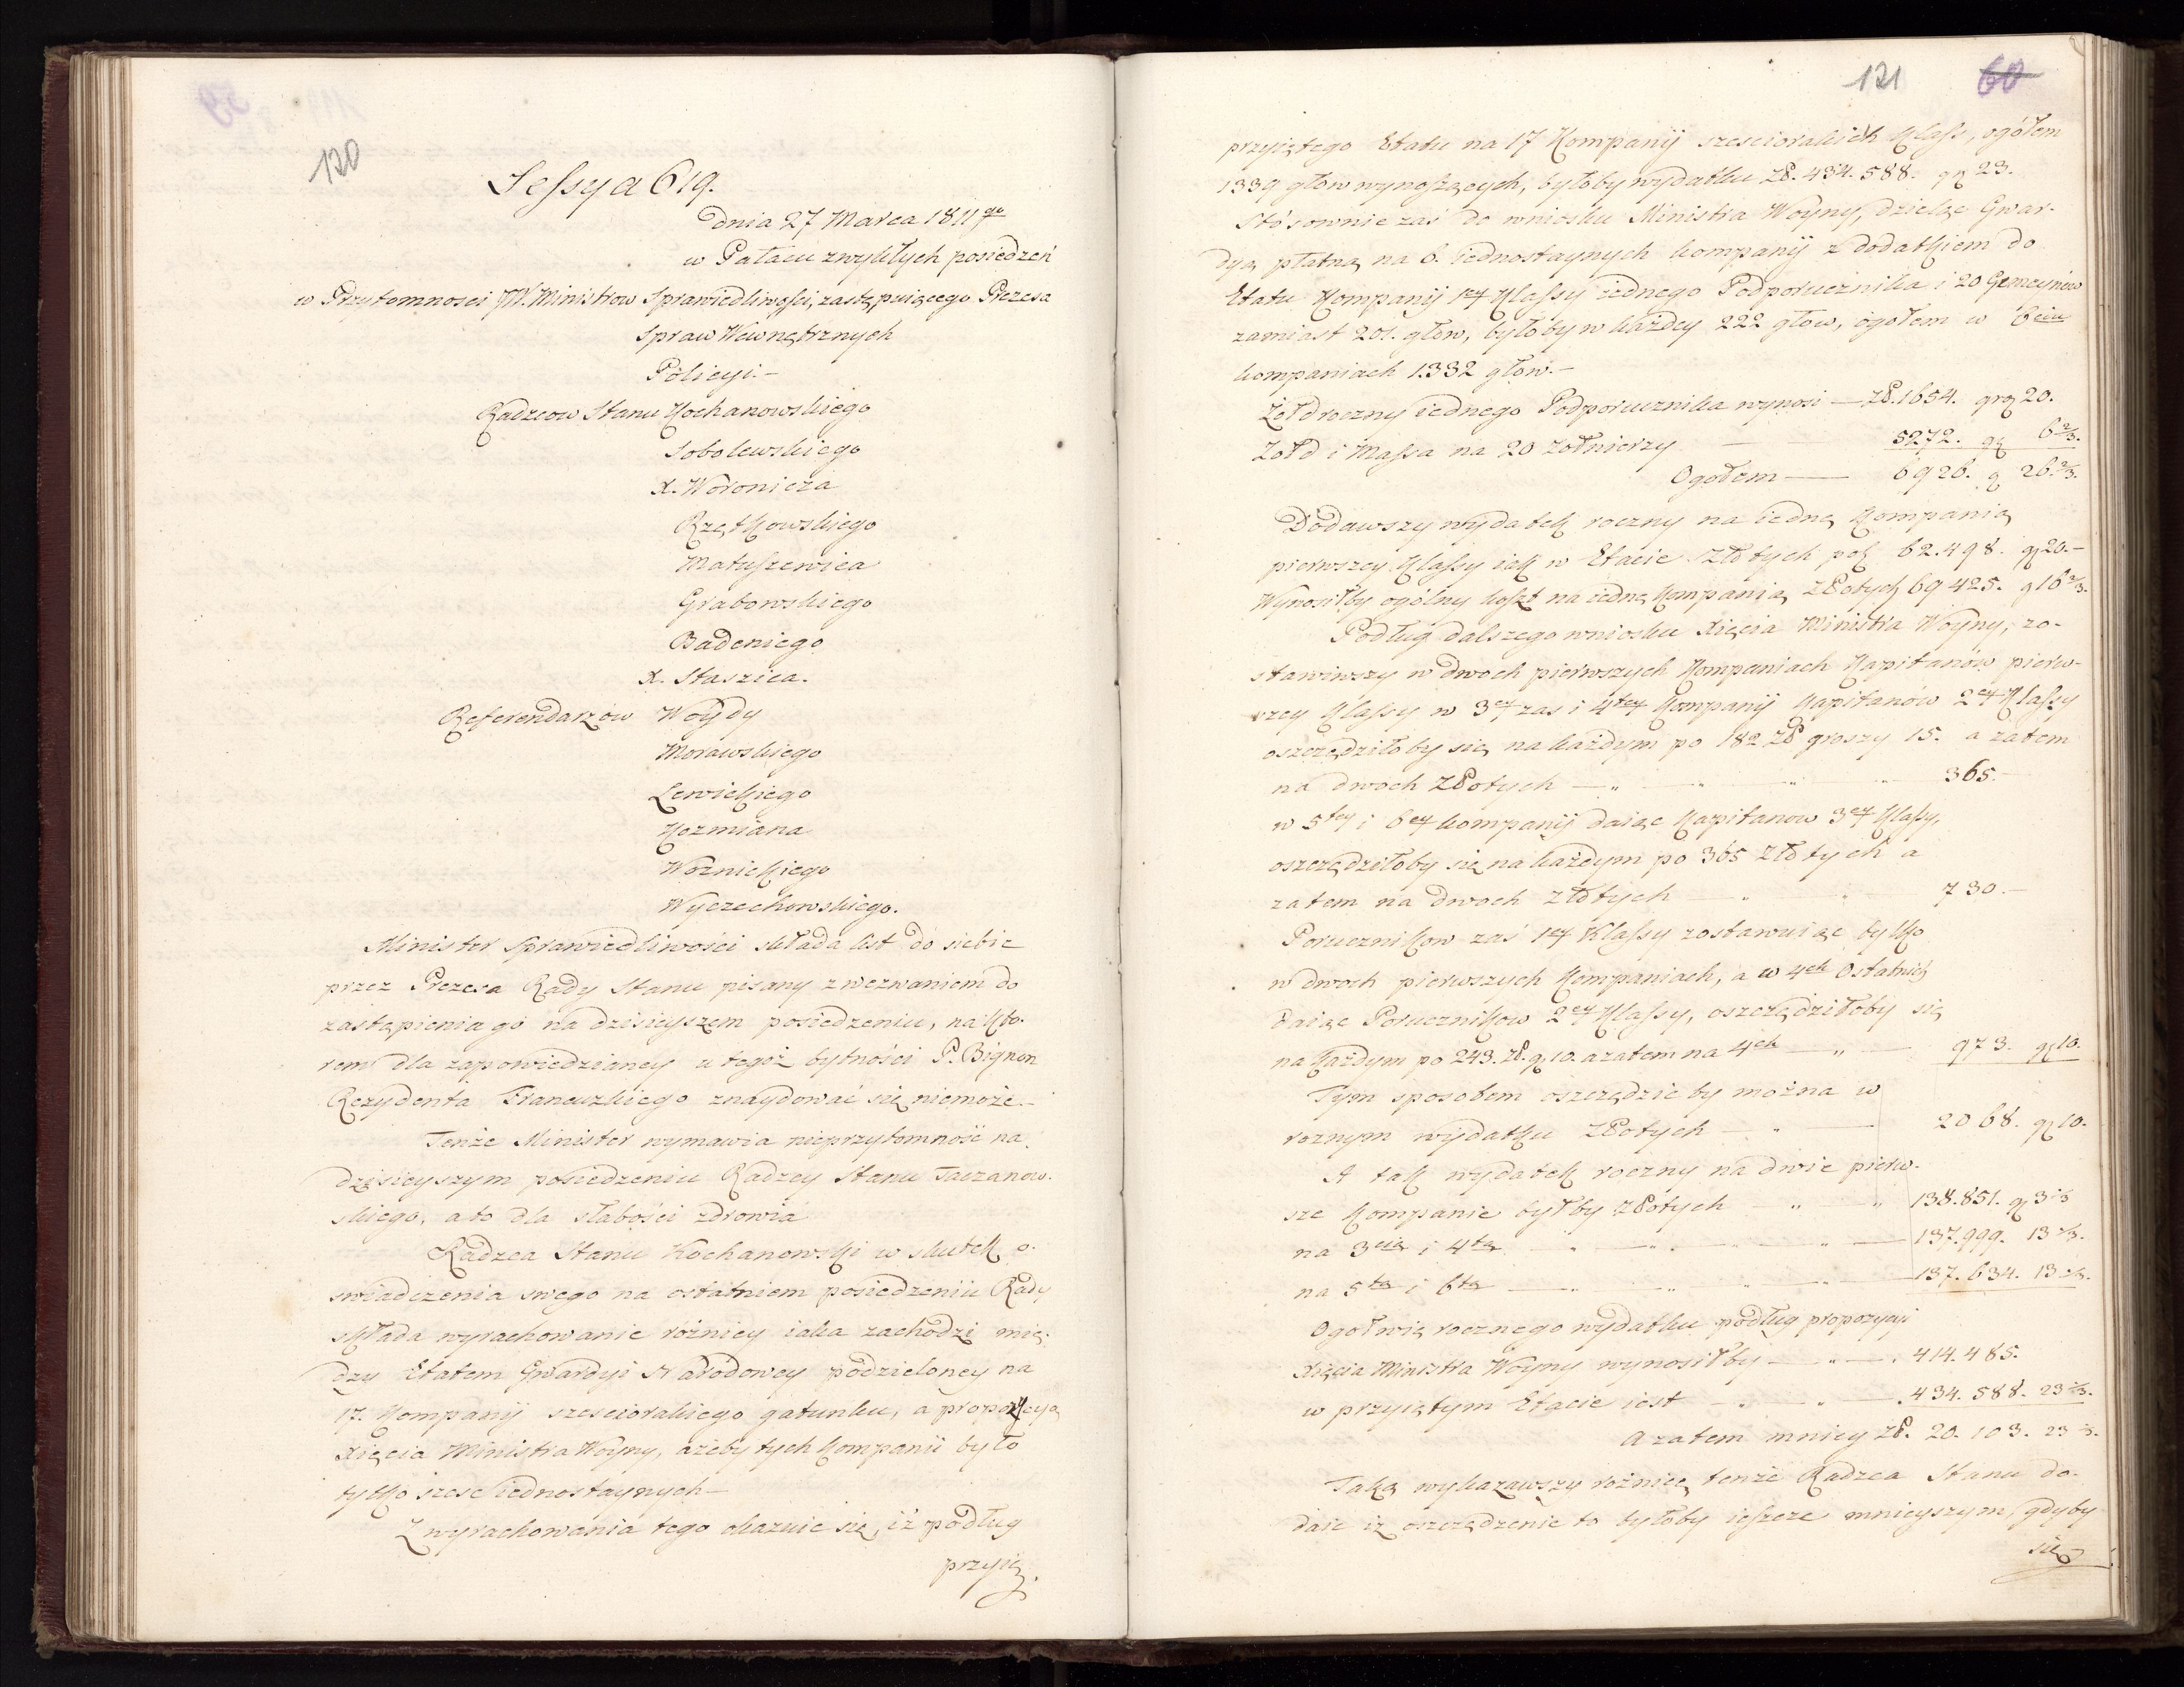 120
Sessya 619.
dnia 27 Marca 1811go
w Pałacu zwykłych posiedzeń
w Przytomnosci JW. Ministrow Sprawiedliwości, zastępuiącego Prezesa
Spraw Wewnętrznych
Policyi.—
Radzcow Stanu Kochanowskiego
Sobolewskiego
X. Woronicza
Rzętkowskiego
Matuszewica
Grabowskiego
Badeniego
X. Staszica.
Referendarzow Woydy
Morawskiego
Lewickiego
Kozmiana
Woznickiego
Wyczechowskiego.
Minister Sprawiedliwości składa list do siebie
przez Prezesa Rady Stanu pisany z wezwaniem do
zastąpienia go na dzisieyszem posiedzeniu, na kto-
rem dla zapowiedzianey u tegoż bytności P. Bignon
Rezydenta Francuzkiego znaydować się niemoże.—
Tenże Minister wymawia nieprzytomność na
dzisieyszym posiedzeniu Radzcy Stanu Taczanow-
skiego, a to dla słabości zdrowia
Radzca Stanu Kochanowski w skutek o-
swiadczenia swego na ostatniem posiedzeniu Rady
składa wyrachowanie rożnicy iaka zachodzi mię-
dzy Etatem Gwardyi Narodowey podzieloney na
17. Kompanij szesciorakiego gatunku, a propozycyą
Xięcia Ministra Woyny, ażeby tych kompanii było
tylko szesc iednostaynych—
Z wyrachowania tego okazuie się, iż podług
przyię-
121 60
przyiętego Etatu na 17 Kompanij szesciorakich klass, ogółem
1339 głow wynoszących, byłoby wydatku zł. 434.588. gr 23.
Stósownie zaś do wniosku Ministra Woyny, dzieląc Gwar-
dyą płatną na 6. iednostaynych kompanij z dodatkiem do
Etatu Kompanij 1ey Klassy iednego Podporucznika i 20 Gemeynów
zamiast 201. głow, byłoby w każdey 222 głow, ogołem w 6ciu
kompaniach 1332 głow.—
Żołd roczny iednego Podporucznika wynosi — zł. 1654. gr 20.
Zołd i Massa na 20 zołnierzy — 5272. gr 6 2/3.
Ogołem — 6926. g 26 2/3.
Dodawszy wydatek roczny na iedną kompanią
pierwszey klassy iak w Etacie złotych pol 62.498. gr 20.—
Wynosiłby ogólny koszt na iedną kompanią złotych 69425. g 16 2/3.
Podług dalszego wniosku Xięcia Ministra Woyny, zo-
stawiwszy w dwoch pierwszych Kompaniach Kapitanów pierw-
szey klassy w 3ey zas i 4tey kompanij Kapitanów 2ey klassy
oszczędziłoby się na każdym po 182 zł groszy 15. a zatem
na dwoch złotych — " — " — " — " 365.—
w 5tey i 6ey kompanij daiąc Kapitanow 3ey klassy,
oszczędziłoby się na każdym po 365 złotych a
zatem na dwoch złotych — " — " 730.—
Porucznikow zaś 1ey Klassy zostawuiąc tylko
w dwoch pierwszych Kompaniach, a w 4ch ostatnich
daiąc Porucznikow 2ey klassy, oszczędziłoby się
na każdym po 243. zł. gr 10. a zatem na 4ch — " — 973. gr 10.
Tym sposobem oszczędzic by można w
roznym wydatku złotych — " — 2068. gr 10.
A tak wydatek roczny na dwie pierw-
sze Kompanie byłby złotych — " — " 138.851. gr 3 1/3
na 3cią i 4tą — " — " — " — 137.999. 13 1/3.
na 5tą i 6tą — " — " — " — 137.634. 13 1/3.
Ogoł więc rocznego wydatku podług propozycyi
Xięcia Ministra Woyny wynosiłby — " — . 414.485.
w przyiętym Etacie iest — " — " — 434.588. 23 1/3.
A zatem mniey zł. 20.103. 23 1/3.
Taką wykazawszy rożnicę tenże Radzca Stanu do-
daie iż oszczędzenie to byłoby ieszcze mnieyszym, gdyby
się